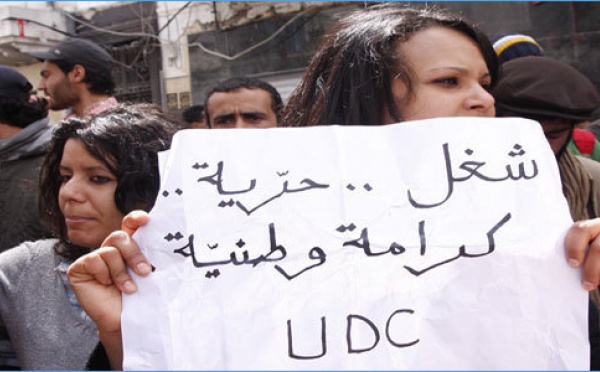 شغل .. حرّية ..
كرامة وطنيّة .
UDC